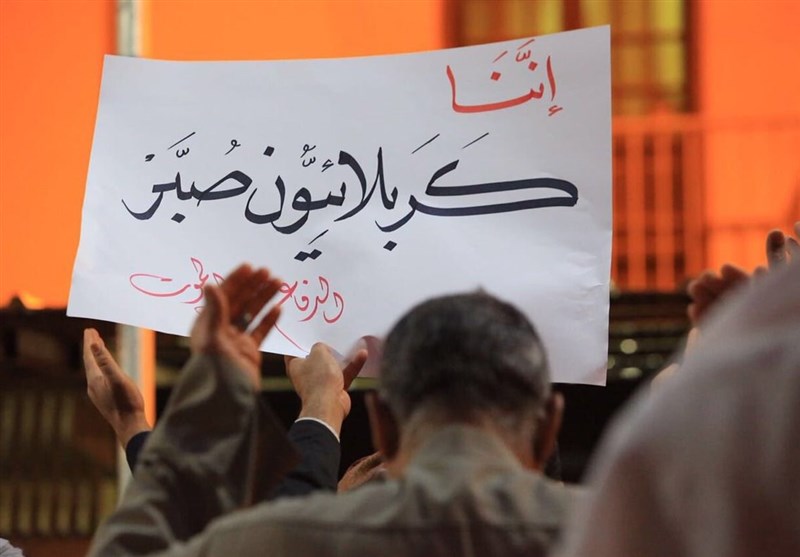 إِنَّنَا
كَرْبَلائِيُّون صُبَّرْ
الدفاع الموت